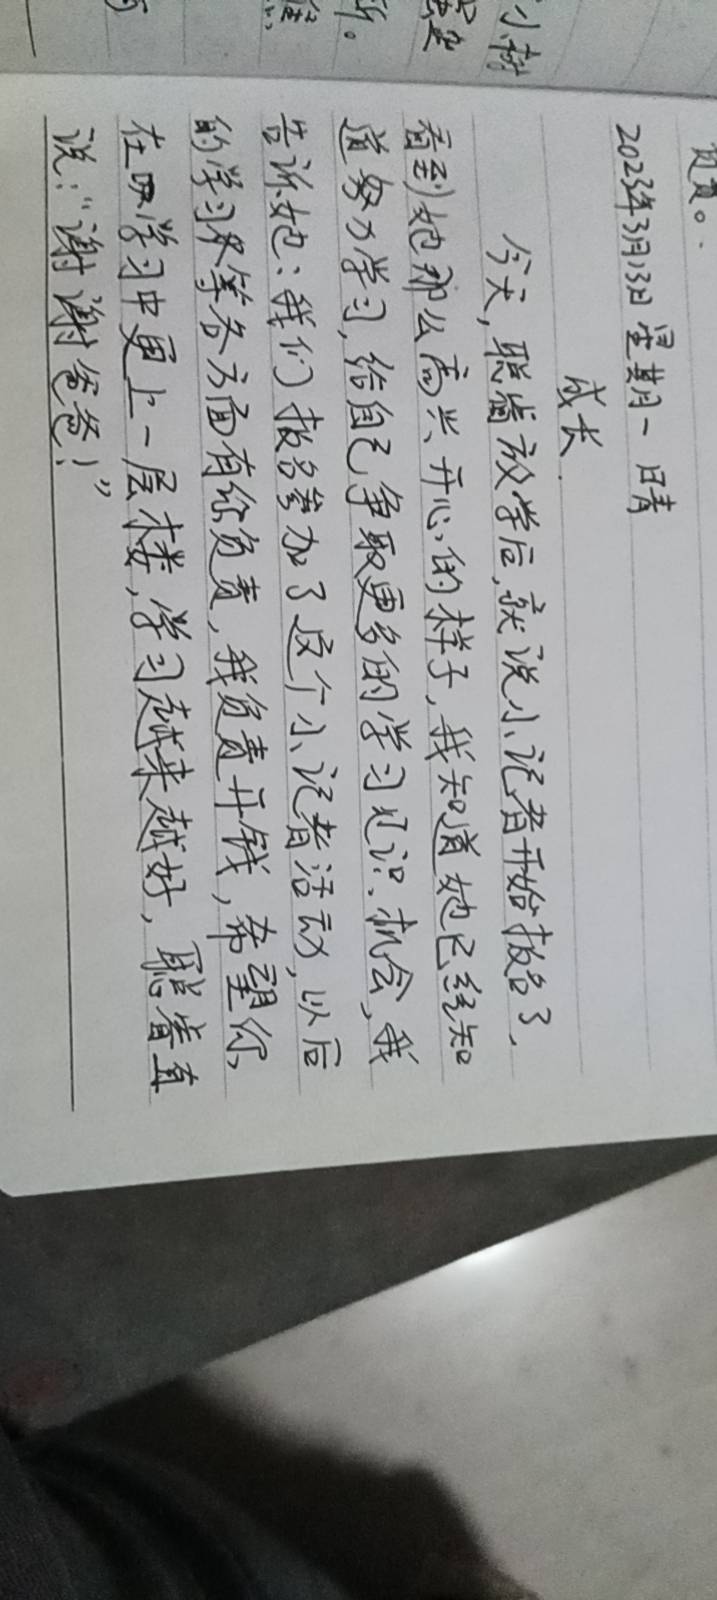 负责。
2023年3月13日 星期一 晴
成长
今天,聪睿放学后,就说小记者开始报名了,
看到她那么高兴开心的样子,我知道她已经知
道努力学习,给自己争取更多的学习见识、机会,我
告诉她:我们报名参加了这个小记者活动,以后
的学习等各方面有你负责,我负责开钱,希望你
在学习中更上一层楼,学习越来越好,聪睿直
说:“谢谢爸爸!”
小树